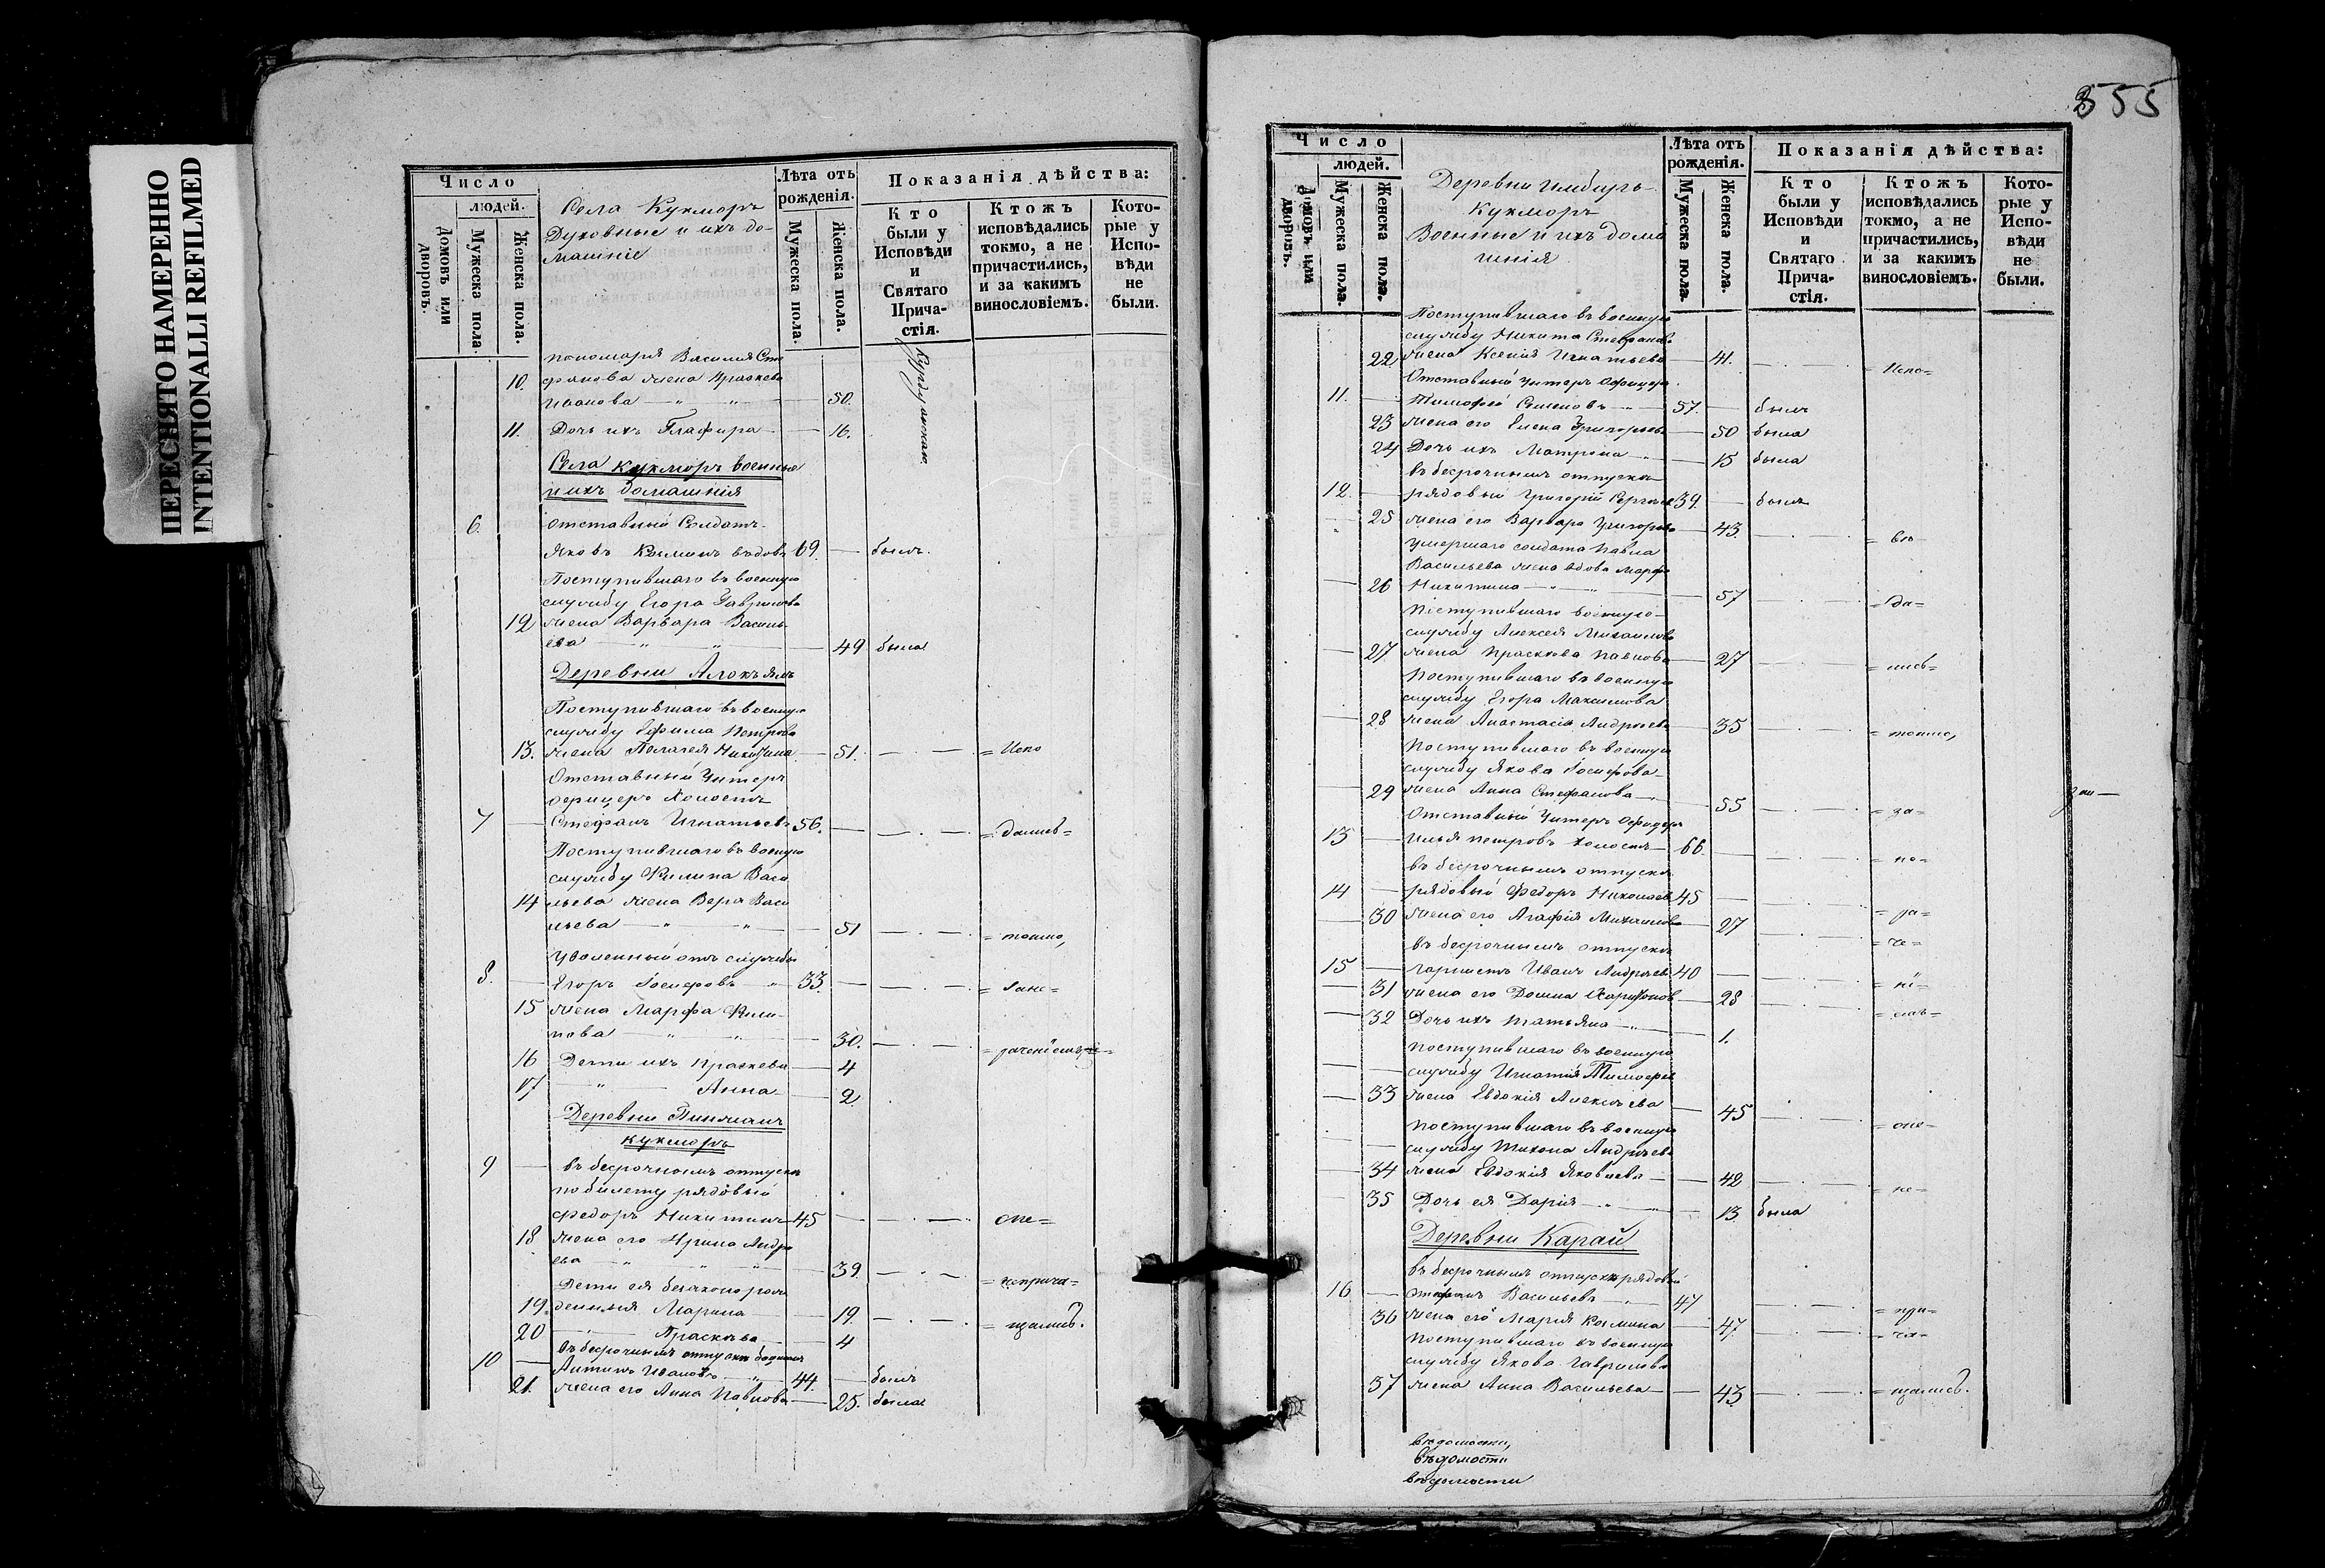 ПЕРЕСНЯТО НАМЕРЕННО
INTENTIONALLI REFILMED
Число
людей.
Домовъ или дворовъ.
Мужеска пола.
Женска пола.
Села Кукморъ
Духовные и ихъ до-
машніе
Лѣта отъ рожденія.
Мужеска пола.
Женска пола.
Показанія дѣйства:
Кто были у Исповѣди и Святаго Прича-стія.
Ктожъ исповѣдались токмо, а не причастились, и за какимъ винословіемъ.
Кото-рые у Испо-вѣди не были.
пономаря Василия Сте
10. фанова жена Праскева
Иванова — „ — „ — 50.
11. Дочь ихъ Глафира — 16.
Села Кукморъ военные
и ихъ домашнія
6. отставный Солдатъ
Яковъ Козминъ вдовъ 69. — былъ.
Поступившаго въ военную
службу Егора Гаврилова
12 жена Варвара Василь-
ева — „ — „ — 49 была
Деревни
Поступившаго въ военную
службу Ефима Петрова
13. жена Пелагея Никитина — 51. — . — = Испо
Отставный Унтеръ
офицеръ Холостъ
7 — Стефанъ Игнатьевъ 56. — . — = дались=
Поступившаго въ военную
службу Филипа Васи
14 льева жена Вера Васи
льева — „ — „ — 51 — . — = токмо,
Уволенный отъ службы
8. — Егоръ Іосифовъ — „ — 33. — . —
15 жена Марфа Фили-
пова — „ — „ — 30. — . —
16 Дети ихъ Праскева — 4
17 — „ — Анна — 2.
Деревни
Кукморъ
9 — въ безсрочномъ отпуске
по билету рядовый
Федоръ Никитинъ 45 — . — опе=
18 жена его Ирина Андре
ева — „ — „ — 39. — . — = неприча=
Дети ея беззаконорож
19. денныя Марина — 19. — . — = щались.
20 — „ — Праскева — 4
въ безсрочномъ отпуске
10 — Антипъ Ивановъ — „ — 44. — былъ
21. жена его Анна Павлова — 25. была
555
Число
людей.
Домовъ или дворовъ.
Мужеска пола.
Женска пола.
Деревни
Кукморъ
Военные и ихъ дома
шнія
Лѣта отъ рожденія.
Мужеска пола.
Женска пола.
Показанія дѣйства:
Кто были у Исповѣди и Святаго Прича-стія.
Ктожъ исповѣдались токмо, а не причастились, и за какимъ винословіемъ.
Кото-рые у Испо-вѣди не были.
Поступившаго въ военную
службу Никита Стефанова
22 жена Ксения Игнатьева — 41. — . — = Испо=
Отставный Унтеръ Офицеръ
11. — Тимофей Семеновъ — „ — 57. — былъ
23 жена его Елена Григорьева — 50 была
24 Дочь ихъ Матрона — „ — 15 была
въ безсрочномъ отпуске
12. — рядовый Григорій Сергеевъ 39. — былъ
25 жена его Варвара Григорьева — 43. — . — = вѣ
Умершаго солдата Павла
Васильева жена вдова Марфа
26 Никитина — „ — 57 — . — = да=
Поступившаго военную
службу Алексея Михаилова
27 жена Праскева Павлова — 27 — . — = лись=
Поступившаго въ военную
службу Егора Максимова
28 жена Анастасія Андреева — 35 — . — = токмо,
Поступившаго въ военную
службу Якова Іосифова
29 жена Анна Стефанова — 55 — . — = за=
Отставный Унтеръ Офицеръ
13 — Илья Петровъ холостъ — 66. — . — = но=
въ безсрочномъ отпуске
14 — рядовый Федоръ Николаевъ 45 — . — = ра=
30 жена его Агафія Михаилова — 27 — . — = че=
въ безсрочномъ отпуске
15 — Иванъ Андреевъ 40 — . — = ні=
31 жена его Домна Харитонова — 28 — . —
32 Дочь ихъ Татьяна — „ — 1.
поступившаго въ военную
службу Игнатія Тимофеева
33 жена Евдокія Алексеева — 45 — . — = опе=
поступившаго въ военную
службу Тихона Андреева
34 жена Евдокія Яковлева — 42 — . — = не=
35 Дочь ея Дарія — „ — 13 была
Деревни Карай
въ безсрочномъ отпуске рядовый
16 — Васильевъ — „ — 47 — . — = при=
36 жена его Марія Козмина — 47. — . — = ча=
поступившаго въ военную
службу Якова Гаврилова
37 жена Анна Васильева — 43 — . — = щались.
вѣдомости,
вѣдомости
вѣдомости